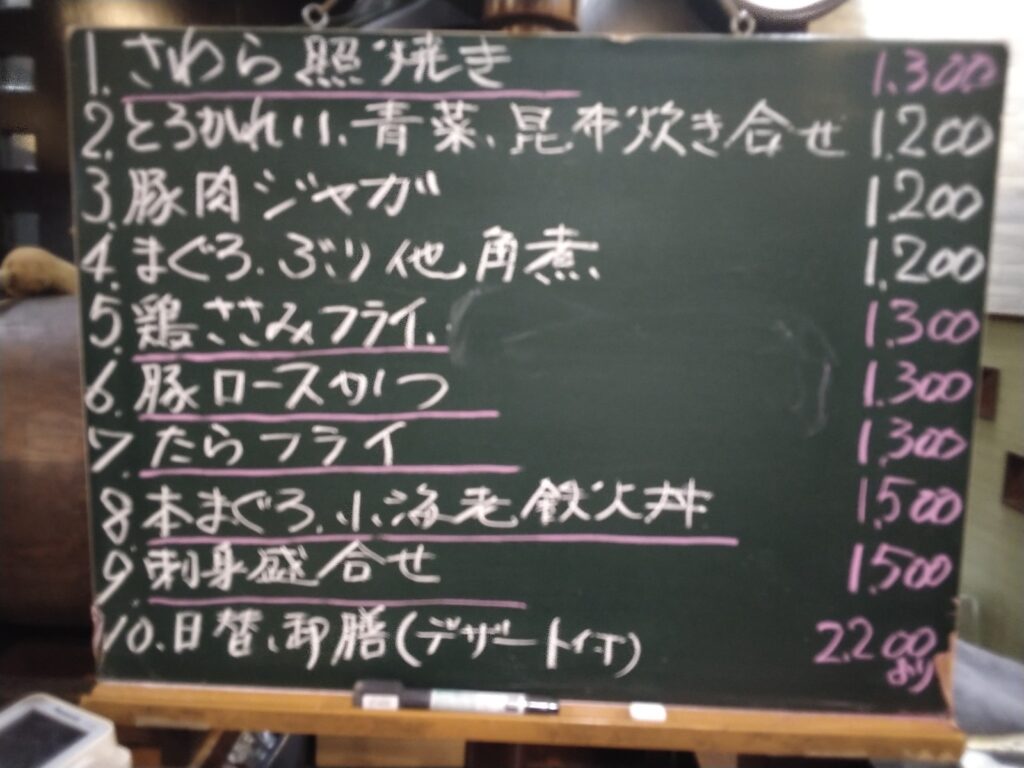 1. さわら照焼き 1.300
2. とろかれい、青菜、昆布炊き合せ 1.200
3. 豚肉ジャガ 1.200
4. まぐろ、ぶり他角煮 1.200
5. 鶏ささみフライ 1.300
6. 豚ロースかつ 1.300
7. たらフライ 1.300
8. 本まぐろ、小海老鉄火丼 1.500
9. 刺身盛合せ 1.500
10. 日替、御膳(デザート付) 2.200
より